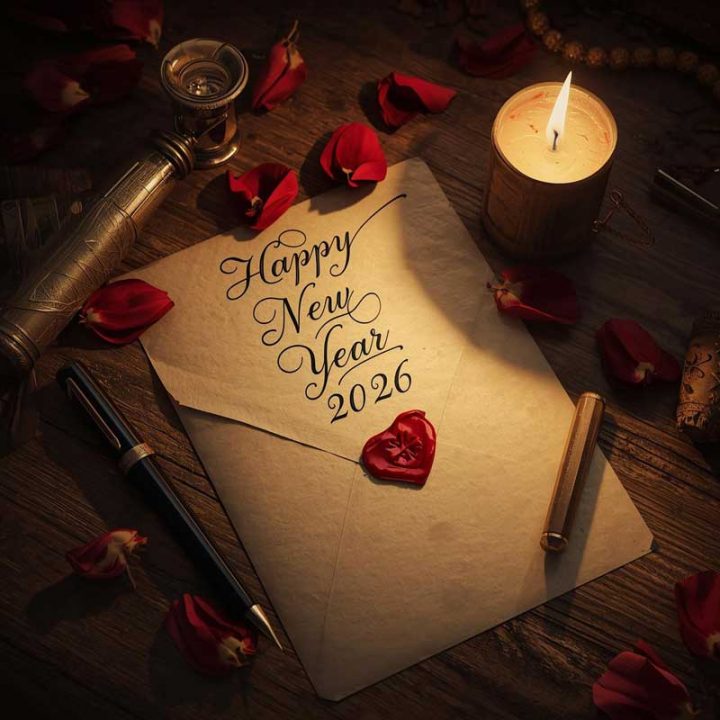 Happy
New
Year
2026